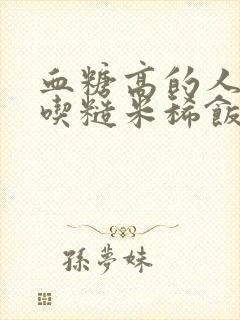 血糖高的人
喫糙米稀飯
孫夢妹